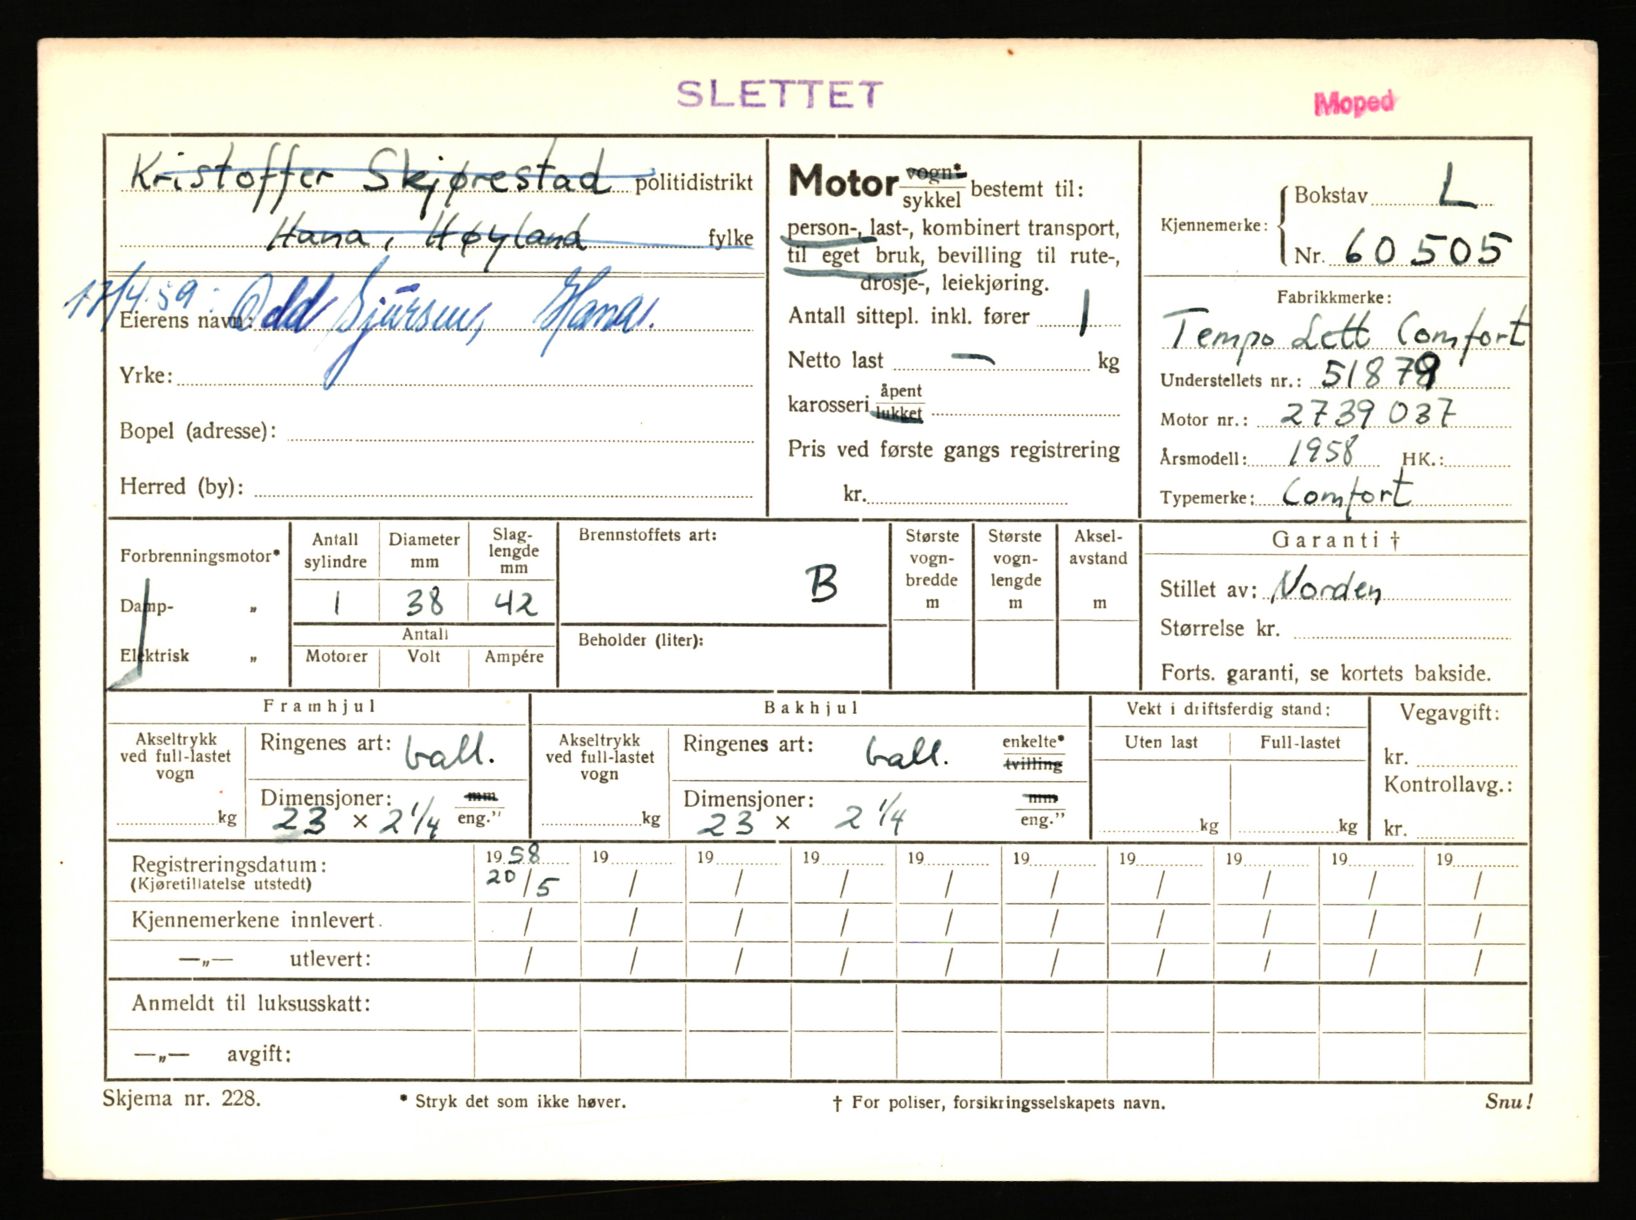 SLETTET
Moped
Kristoffer Skjørestad politidistrikt
Hana, Høyland fylke
17/4 59: Odd Sjursen, Hana.
Eierens navn:
Yrke:
Bopel (adresse):
Herred (by):
Motor vogn* sykkel bestemt til:
person-, last-, kombinert transport,
til eget bruk, bevilling til rute-,
drosje-, leiekjøring.
Antall sittepl. inkl. fører 1
Netto last — kg
karosseri åpent lukket
Pris ved første gangs registrering
kr.
Kjennemerke: Bokstav L
Nr. 60505
Fabrikkmerke:
Tempo Lett Comfort
Understellets nr.: 51879
Motor nr.: 2739037
Årsmodell: 1958 HK.:
Typemerke: Comfort
Forbrenningsmotor*
Damp- „
Elektrisk „
Antall sylindre Diameter mm Slag-lengde mm
1 38 42
Antall
Motorer Volt Ampére
Brennstoffets art:
B
Beholder (liter):
Største vogn-bredde m
Største vogn-lengde m
Aksel-avstand m
Garanti †
Stillet av: Norden
Størrelse kr.
Forts. garanti, se kortets bakside.
Framhjul
Akseltrykk ved full-lastet vogn
kg
Ringenes art: ball.
Dimensjoner: mm
23 x 2 1/4 eng."
Bakhjul
Akseltrykk ved full-lastet vogn
kg
Ringenes art: ball. enkelte* tvilling
Dimensjoner: mm
23 x 2 1/4 eng."
Vekt i driftsferdig stand:
Uten last Full-lastet
kg kg
Vegavgift:
kr.
Kontrollavg.:
kr.
Registreringsdatum: 1958 19 19 19 19 19 19 19 19 19
(Kjøretillatelse utstedt) 20/5 / / / / / / / / /
Kjennemerkene innlevert. / / / / / / / / / /
—„— utlevert: / / / / / / / / / /
Anmeldt til luksusskatt:
—„— avgift:
Skjema nr. 228. * Stryk det som ikke høver. † For poliser, forsikringsselskapets navn. Snu!